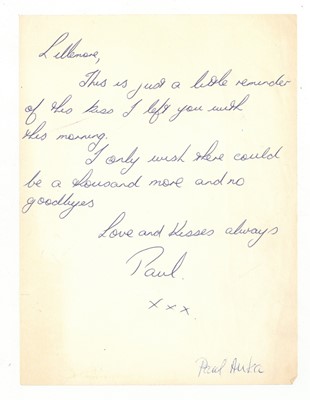 Lillemore,
This is just a little reminder
of this kiss I left you with
this morning.
I only wish there could
be a thousand more and no
goodbyes
Love and Kisses always
Paul.
x x x.
Paul Anka